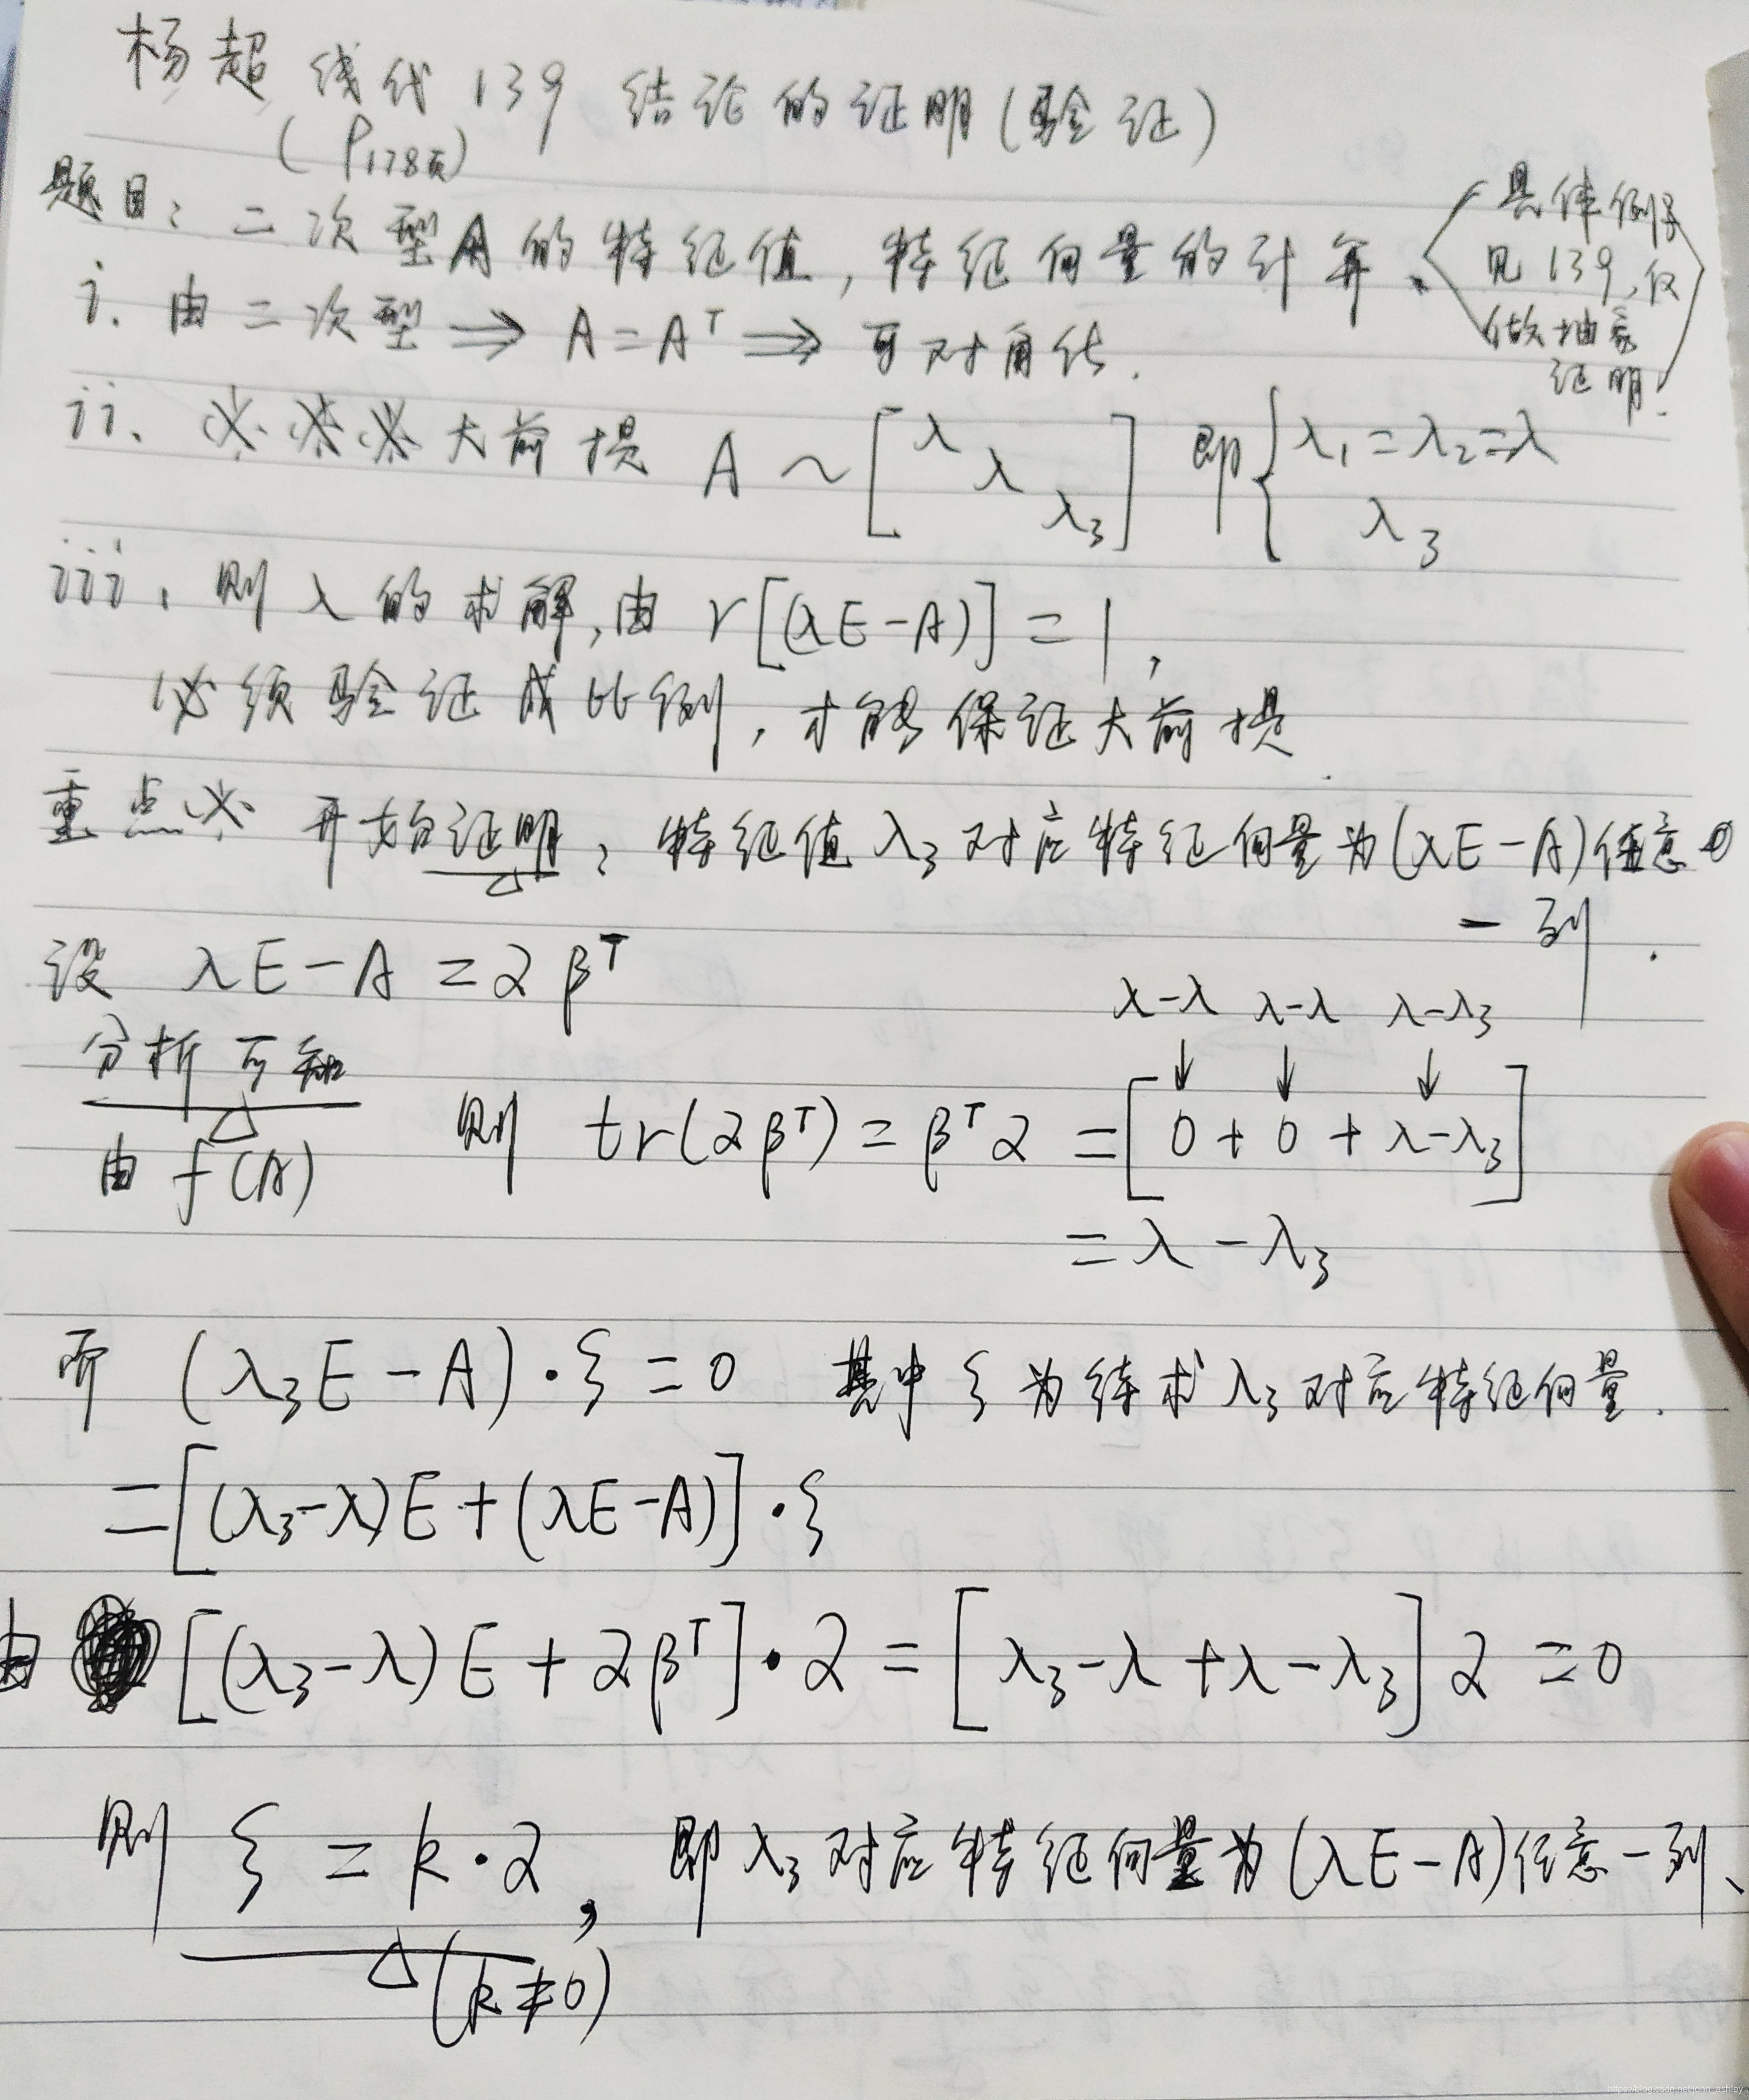 杨超 线代 139 结论的证明(验证)
(P178页)
题目: 二次型A的特征值,特征向量的计算、
具体例子
见139,仅
做抽象
证明!
i. 由二次型 ⇒ A=Aᵀ ⇒ 可对角化.
ii. ※※※大前提 A ~ [λ λ λ₃] 即 { λ₁=λ₂=λ
λ₃
iii. 则λ的求解,由 r[(λE-A)]=1,
必须验证成比例,才能保证大前提.
重点※ 开始证明: 特征值λ₃对应特征向量为(λE-A)任意
一列.
设 λE-A=αβᵀ
λ-λ λ-λ λ-λ₃
↓ ↓ ↓
分析可知
由 f(A)
则 tr(αβᵀ)=βᵀα=[0+0+λ-λ₃]
=λ-λ₃
而 (λ₃E-A)·ξ=0 其中ξ为待求λ₃对应特征向量.
=[(λ₃-λ)E+(λE-A)]·ξ
由 [(λ₃-λ)E+αβᵀ]·α=[λ₃-λ+λ-λ₃]α=0
则 ξ=k·α, 即λ₃对应特征向量为(λE-A)任意一列、
(k≠0)